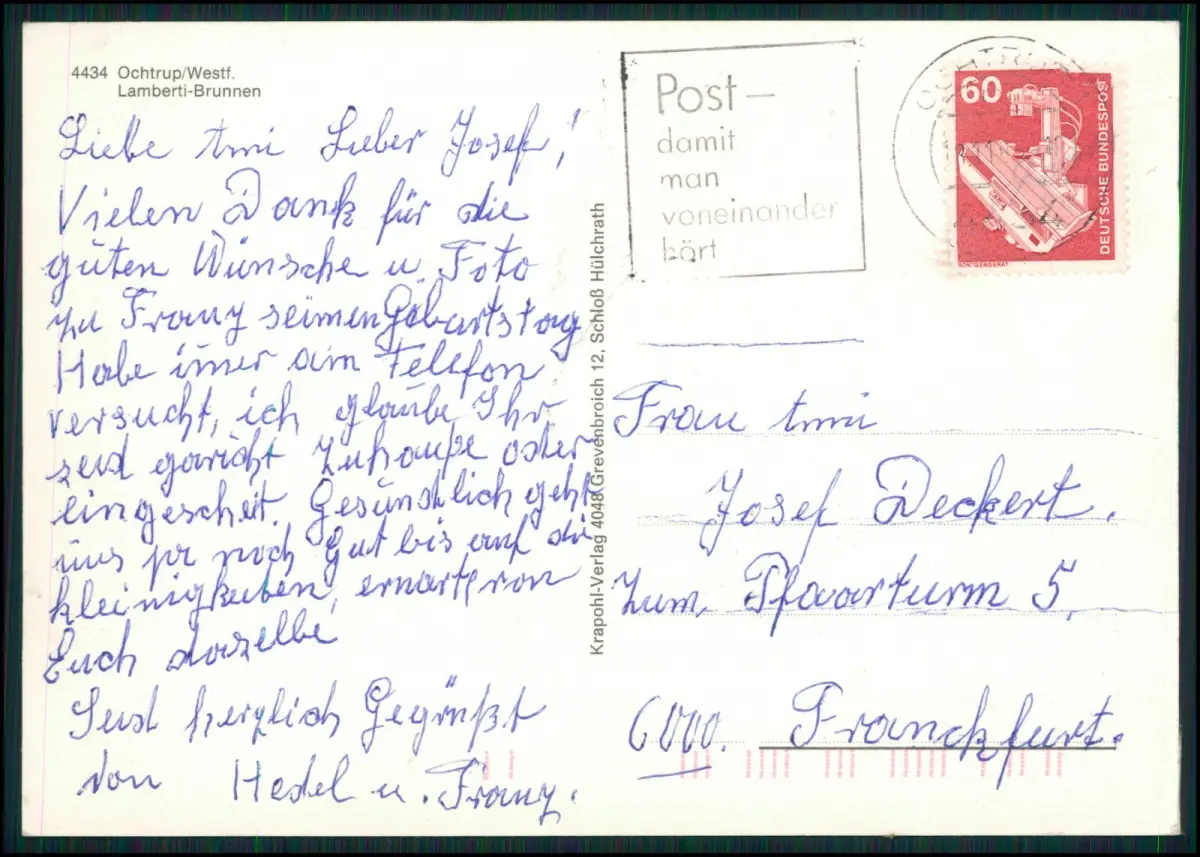 4434 Ochtrup/Westf.
Lamberti-Brunnen
Liebe Ami Lieber Josef!
Vielen Dank für die
guten Wünsche u. Foto
zu Franz seinen Geburtstag
Habe imer am Telefon
versucht, ich glaube Ihr
seid garicht Zuhauße oder
eingescheit. Gesundlich geht
uns ja noch Gut bis auf die
kleinigkeiten, erwarte von
Euch daselbe
Seid herzlich Gegrüßt
von Hedel u. Franz.
Krapohl-Verlag 4048 Grevenbroich 12, Schloß Hülchrath
Post –
damit
man
voneinander
hört
OCHTRUP
60
DEUTSCHE BUNDESPOST
RÖNTGENGERÄT
Frau Ami
Josef Deckert.
Zum Pfaarturm 5,
6000. Franckfurt.